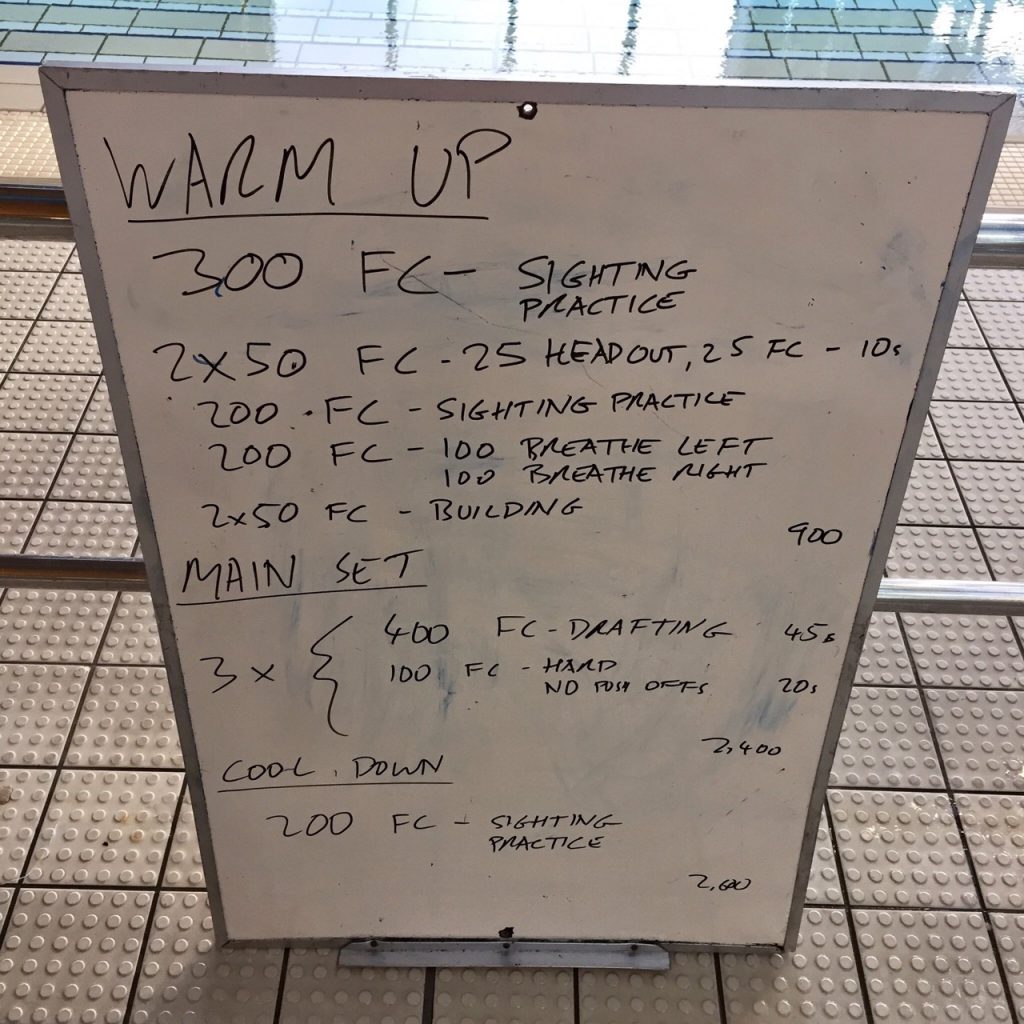 WARM UP
300 FC - SIGHTING
PRACTICE
2x50 FC - 25 HEAD OUT, 25 FC - 10s
200 FC - SIGHTING PRACTICE
200 FC - 100 BREATHE LEFT
100 BREATHE RIGHT
2x50 FC - BUILDING
900
MAIN SET
3 x { 400 FC - DRAFTING 45s
100 FC - HARD
NO PUSH OFFS 20s
2,400
COOL DOWN
200 FC - SIGHTING
PRACTICE
2,600